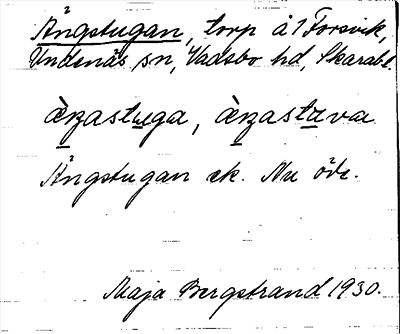 Ängstugan, torp å 1 Forsvik,
Undenäs sn, Vadsbo hd, Skarabl.
äŋastuga, äŋastuva
Ängstugan ek. Nu öde.
Maja Bergstrand 1930.